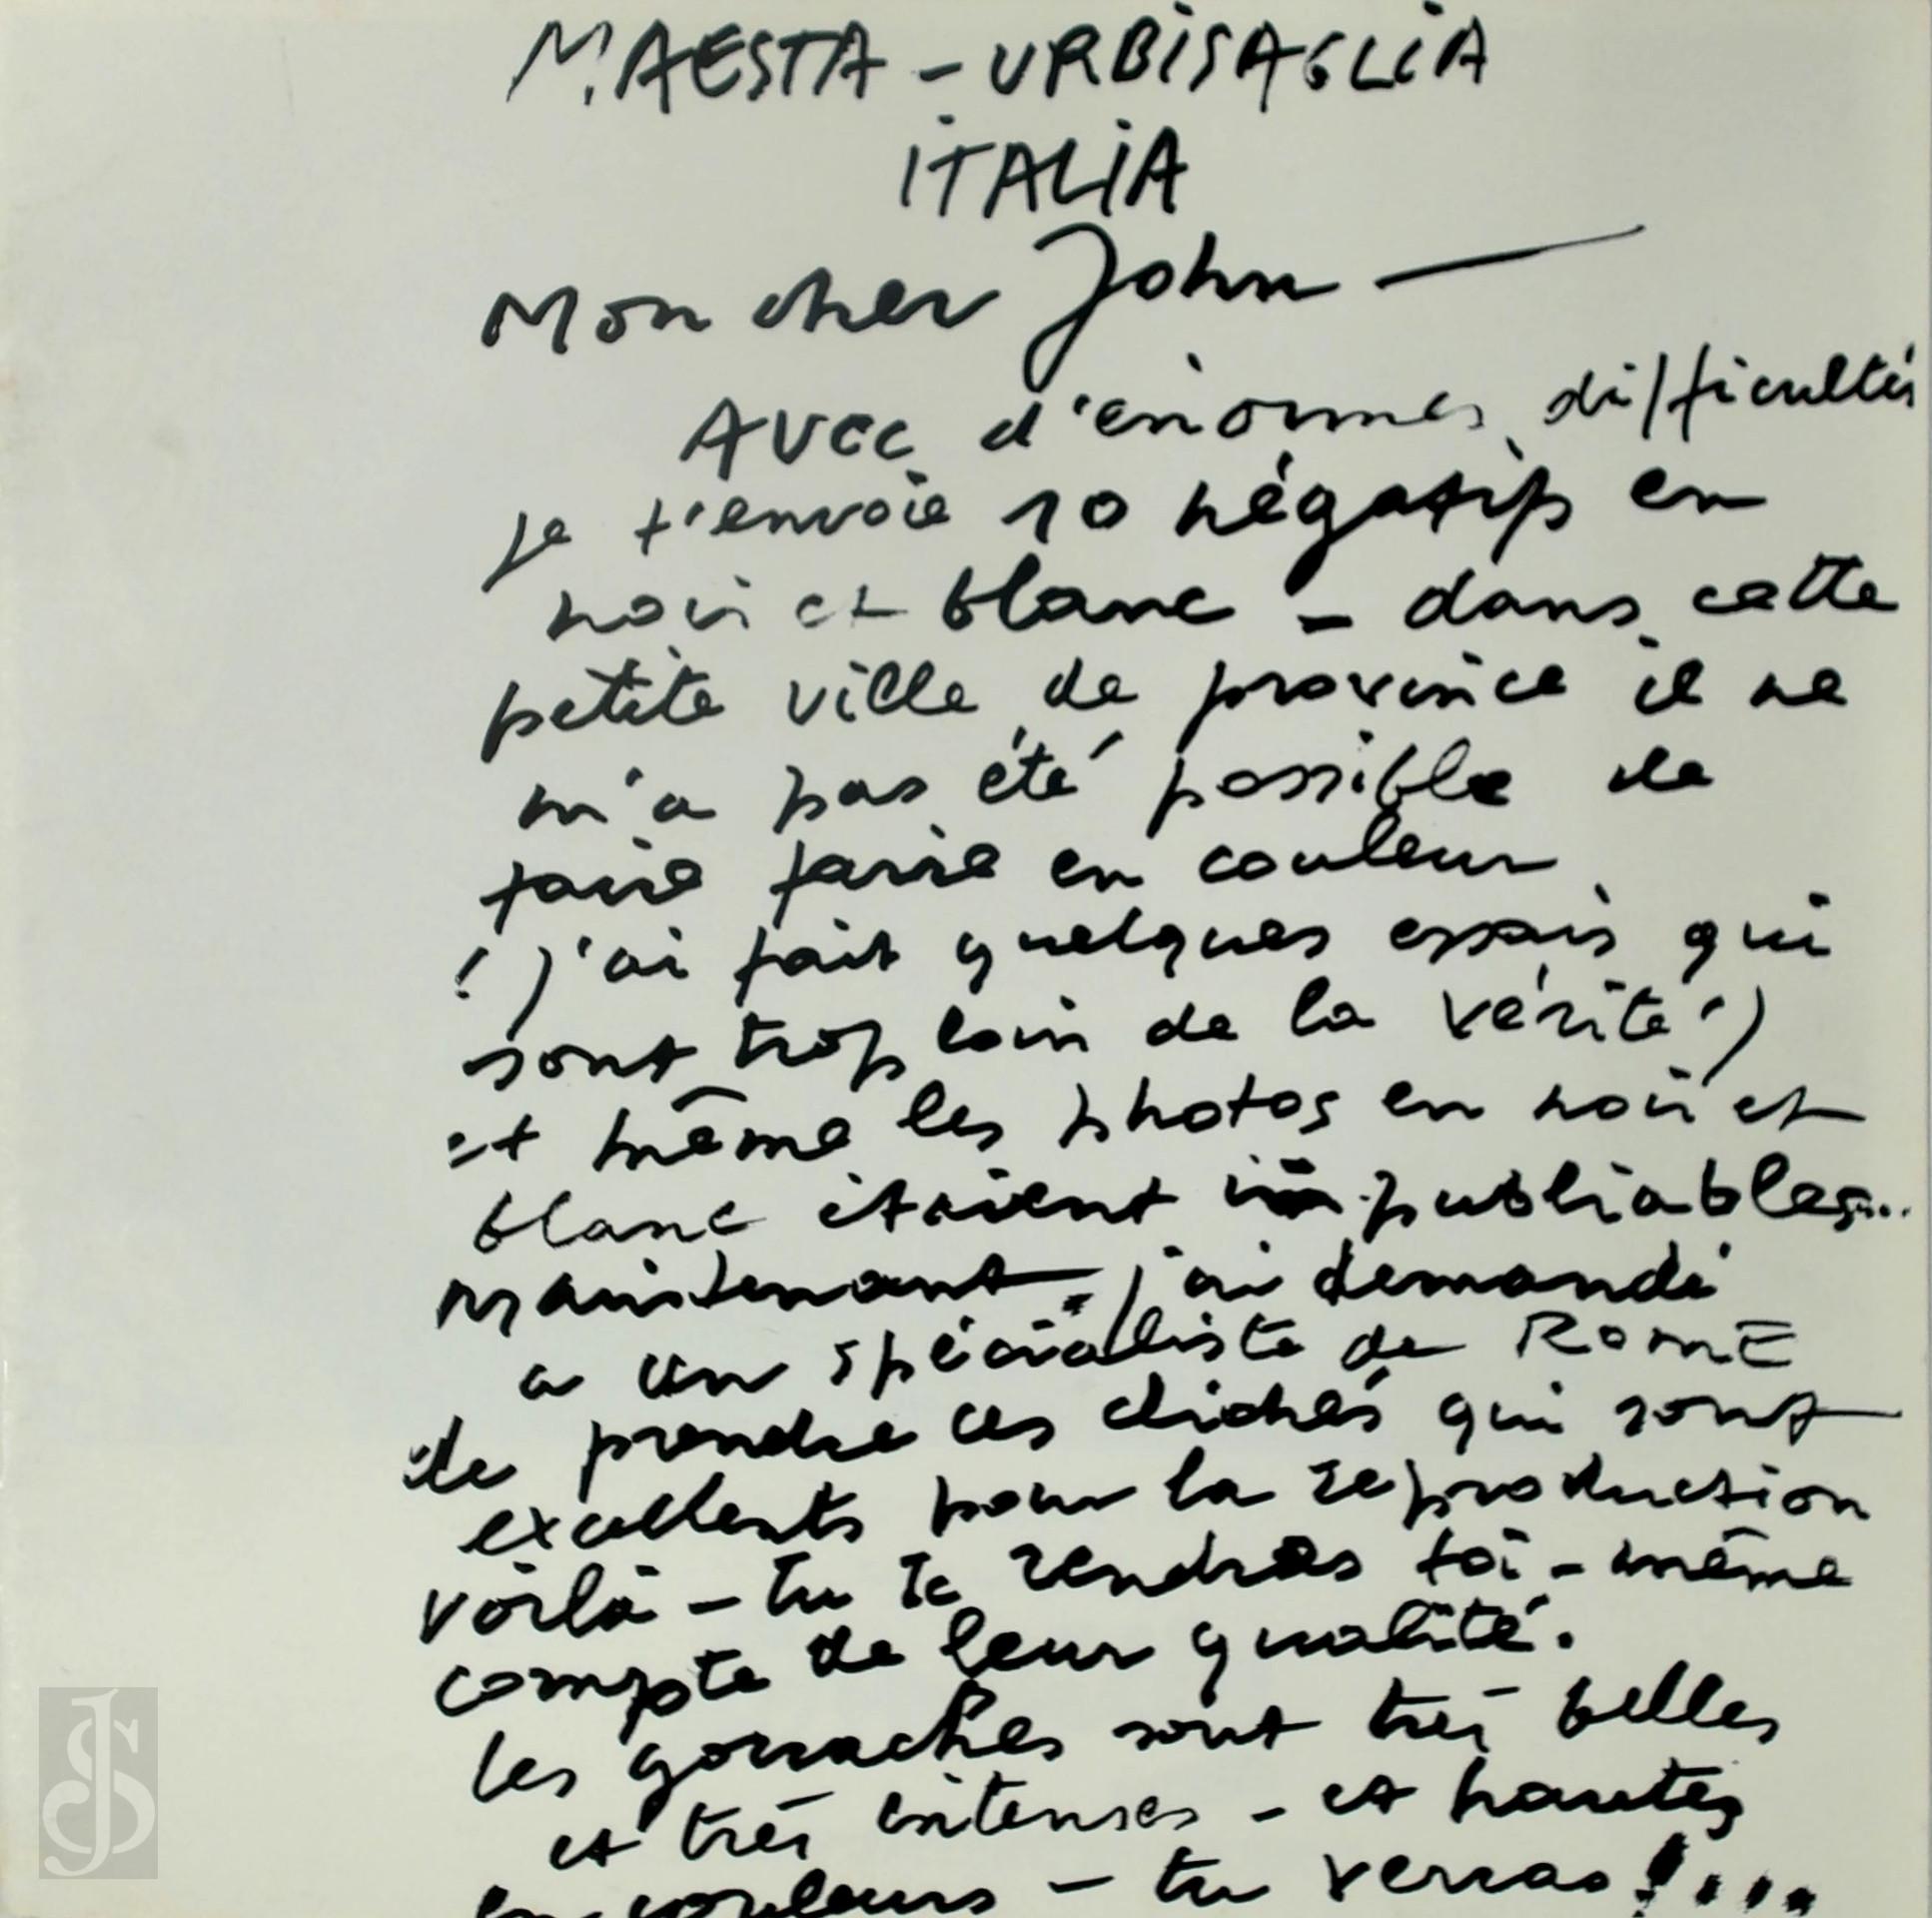 MAESTA - URBISAGLIA
ITALIA
Mon cher John —
Avec d'énormes difficultés
je t'envoie 10 négatifs en
noir et blanc - dans cette
petite ville de province il ne
m'a pas été possible de
faire faire en couleur
(j'ai fait quelques essais qui
sont trop loin de la vérité!)
et même les photos en noir et
blanc étaient impubliables...
maintenant j'ai demandé
a un spécialiste de ROME
de prendre ces clichés qui sont
excellents pour la reproduction
voilà - tu te rendras toi-même
compte de leur qualité.
les gouaches sont très belles
et très intenses - et hautes
en couleurs - tu verras!...
JS